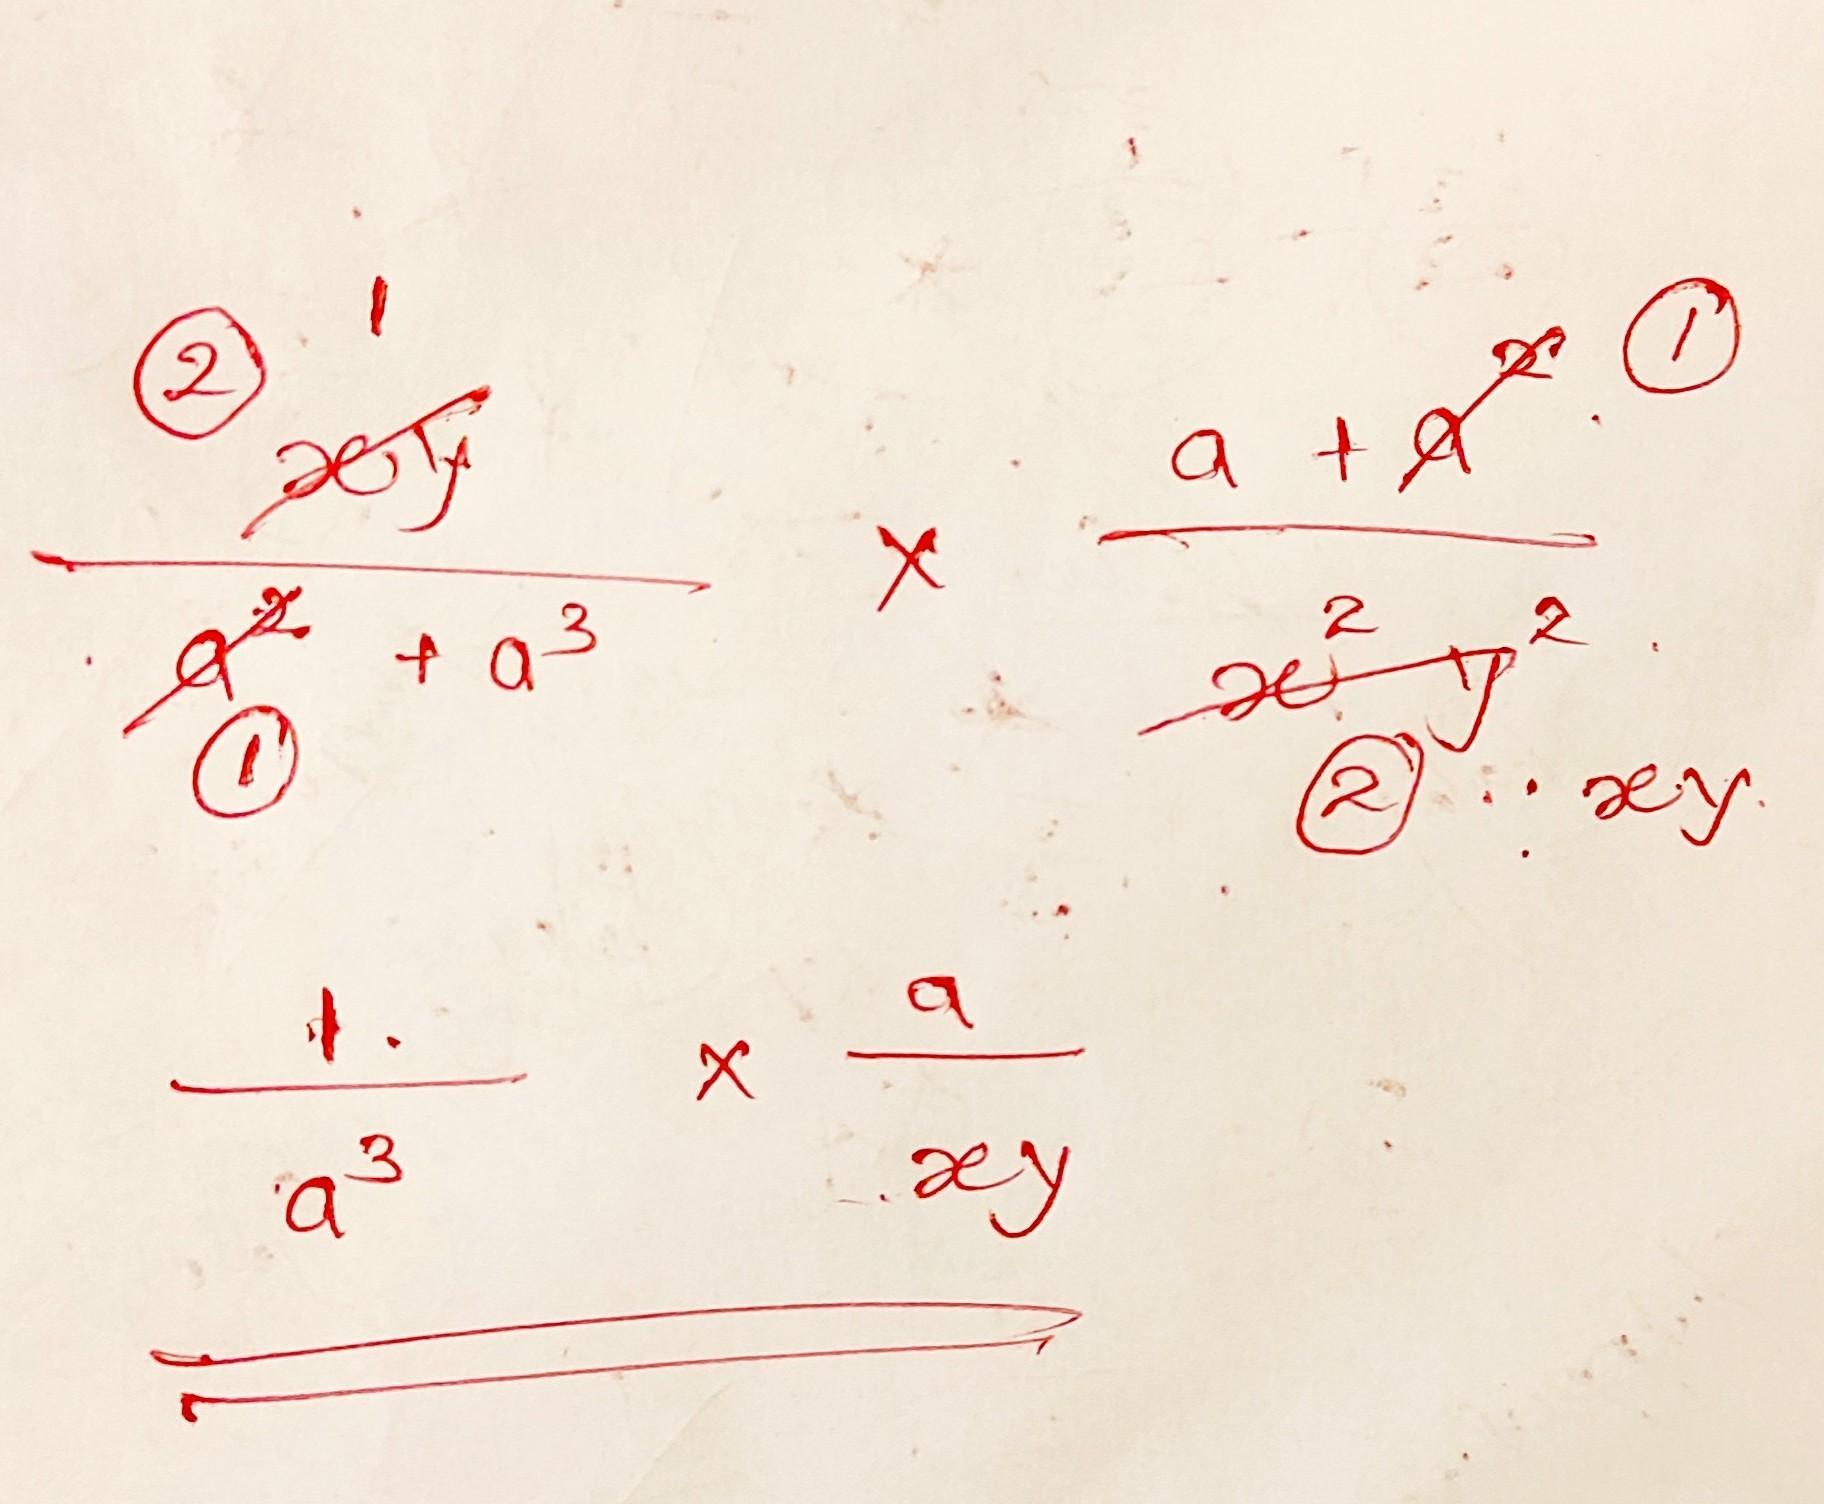 ② 1 ①
xy / a² + a³ × a + a² / x² y²
① ② xy
1 / a³ × a / xy